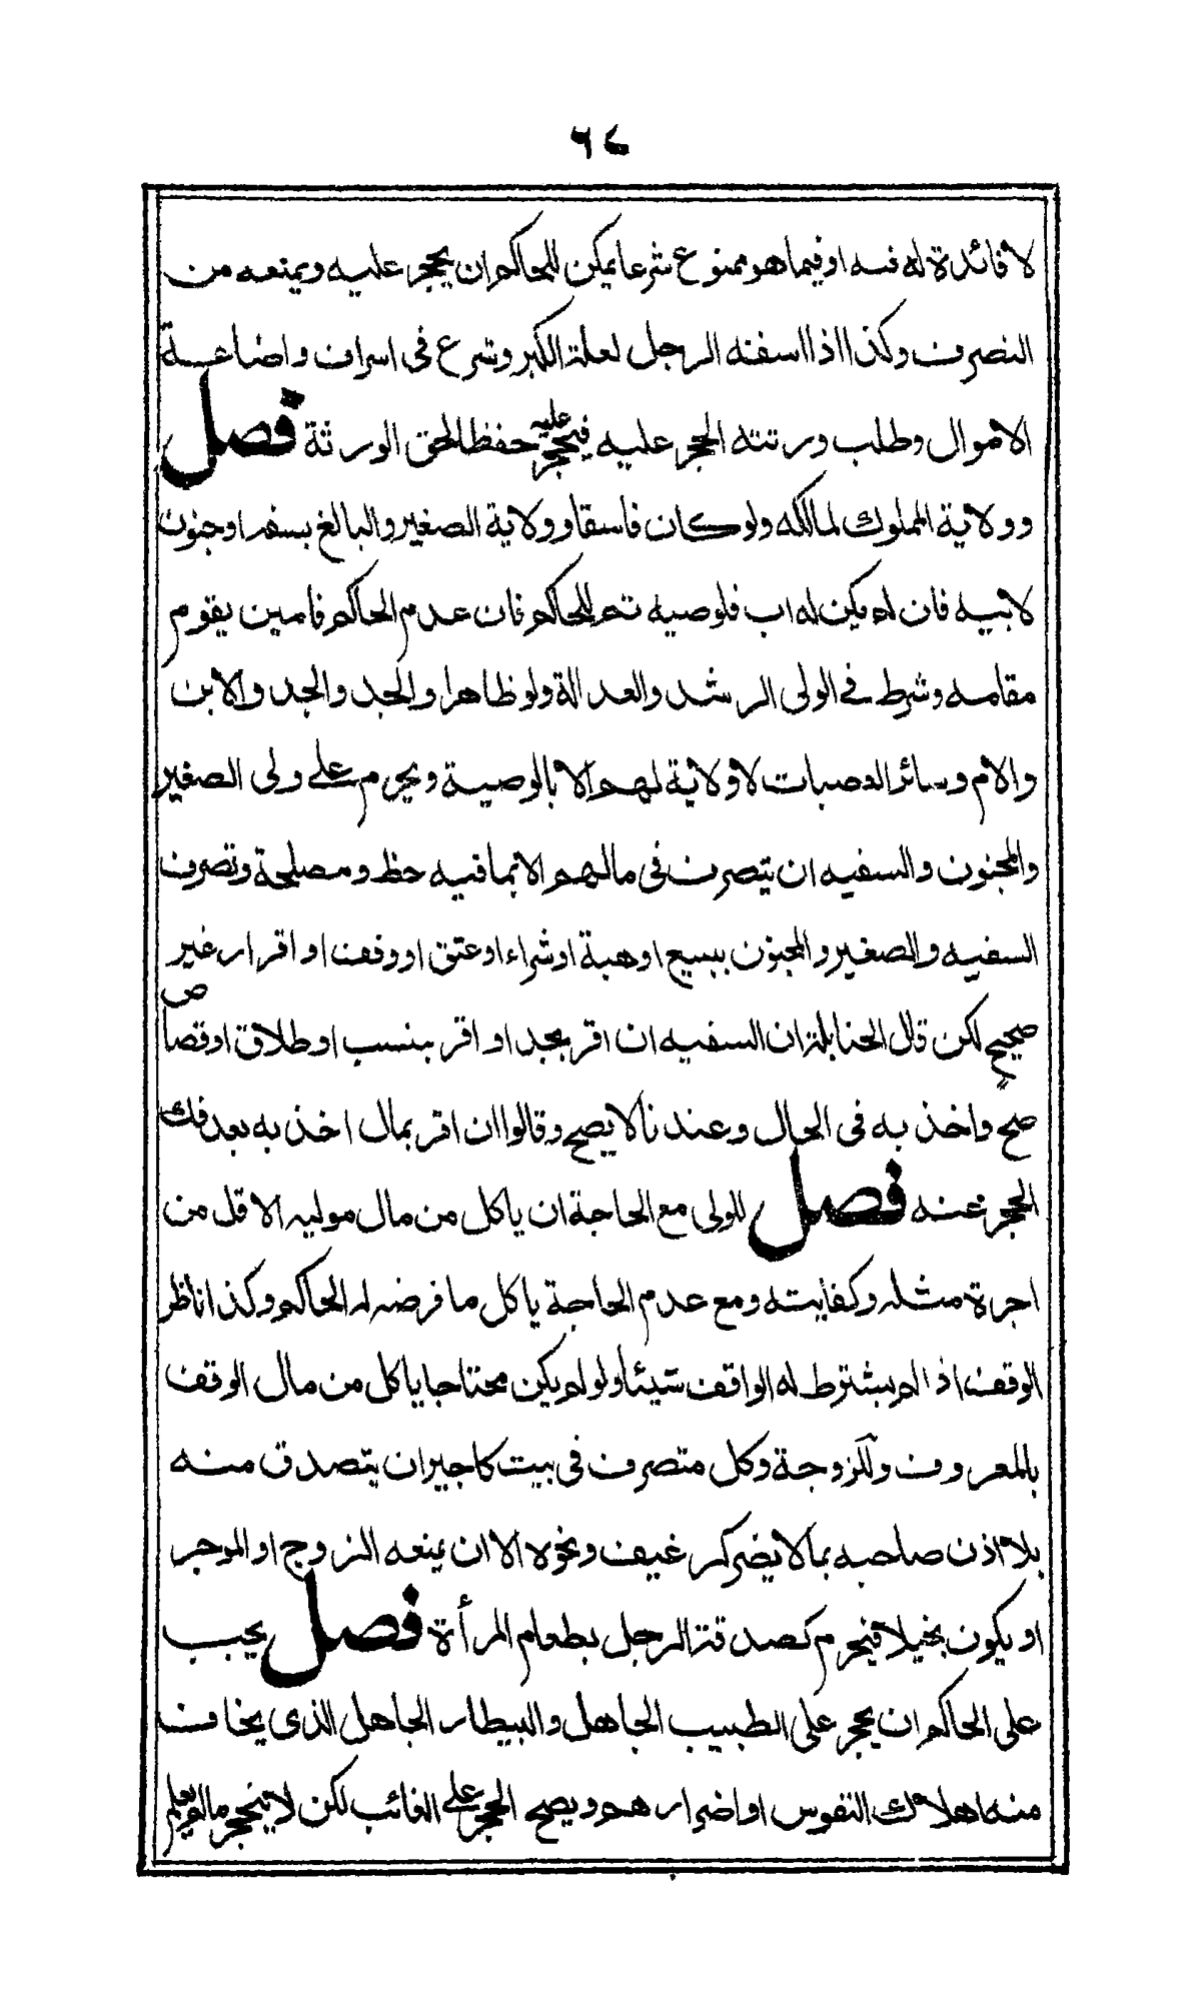 ٦٨
لا فائدة له فيه او فيما هو ممنوع شرعا يمكن للحاكم ان يحجر عليه ويمنعه من
التصرف وكذا اذا اسفه الرجل لعلة الكبر وشرع فى اسراف واضاعة
الاموال وطلب ورثته الحجر عليه فيحجر عليه حفظا لحق الورثة فصل
وولاية المملوك لمالكه ولو كان فاسقا وولاية الصغير والبالغ بسفه او جنون
لابيه فان لم يكن له اب فلوصيه ثم للحاكم فان عدم الحاكم فامين يقوم
مقامه وشرط في الولى الرشد والعدالة ولو ظاهرا والجد والجد والابن
والام وسائر العصبات لا ولاية لهم الا بالوصية ويحرم على ولى الصغير
والمجنون والسفيه ان يتصرف فى مالهم الا بما فيه حظ ومصلحة وتصرف
السفيه والصغير والمجنون ببيع او هبة او شراء او عتق او وقف او اقرار غير
صحيح لكن قال الحنابلة ان السفيه ان اقر بحد او اقر بنسب او طلاق او قصاص
صح واخذ به فى الحال وعندنا لا يصح وقالوا ان اقر بمال اخذ به بعد فك
الحجر عنه فصل للولى مع الحاجة ان ياكل من مال موليه الاقل من
اجرة مثله وكفايته ومع عدم الحاجة ياكل ما فرضه له الحاكم وكذا ناظر
الوقف اذا لم يشترط له الواقف شيئا ولو لم يكن محتاجا ياكل من مال الوقف
بالمعروف وللزوجة وكل متصرف فى بيت كاجير ان يتصدق منه
بلا اذن صاحبه بما لا يضر كرغيف ونحوه الا ان يمنعه الزوج او الموجر
او يكون بخيلا فيحرم كصدقة الرجل بطعام المرأة فصل يجب
على الحاكم ان يحجر على الطبيب الجاهل والبيطار الجاهل الذى يخاف
منه اهلاك النفوس او اضرارهم ويصح الحجر على الغائب لكن لا ينحجر ما لم يعلم